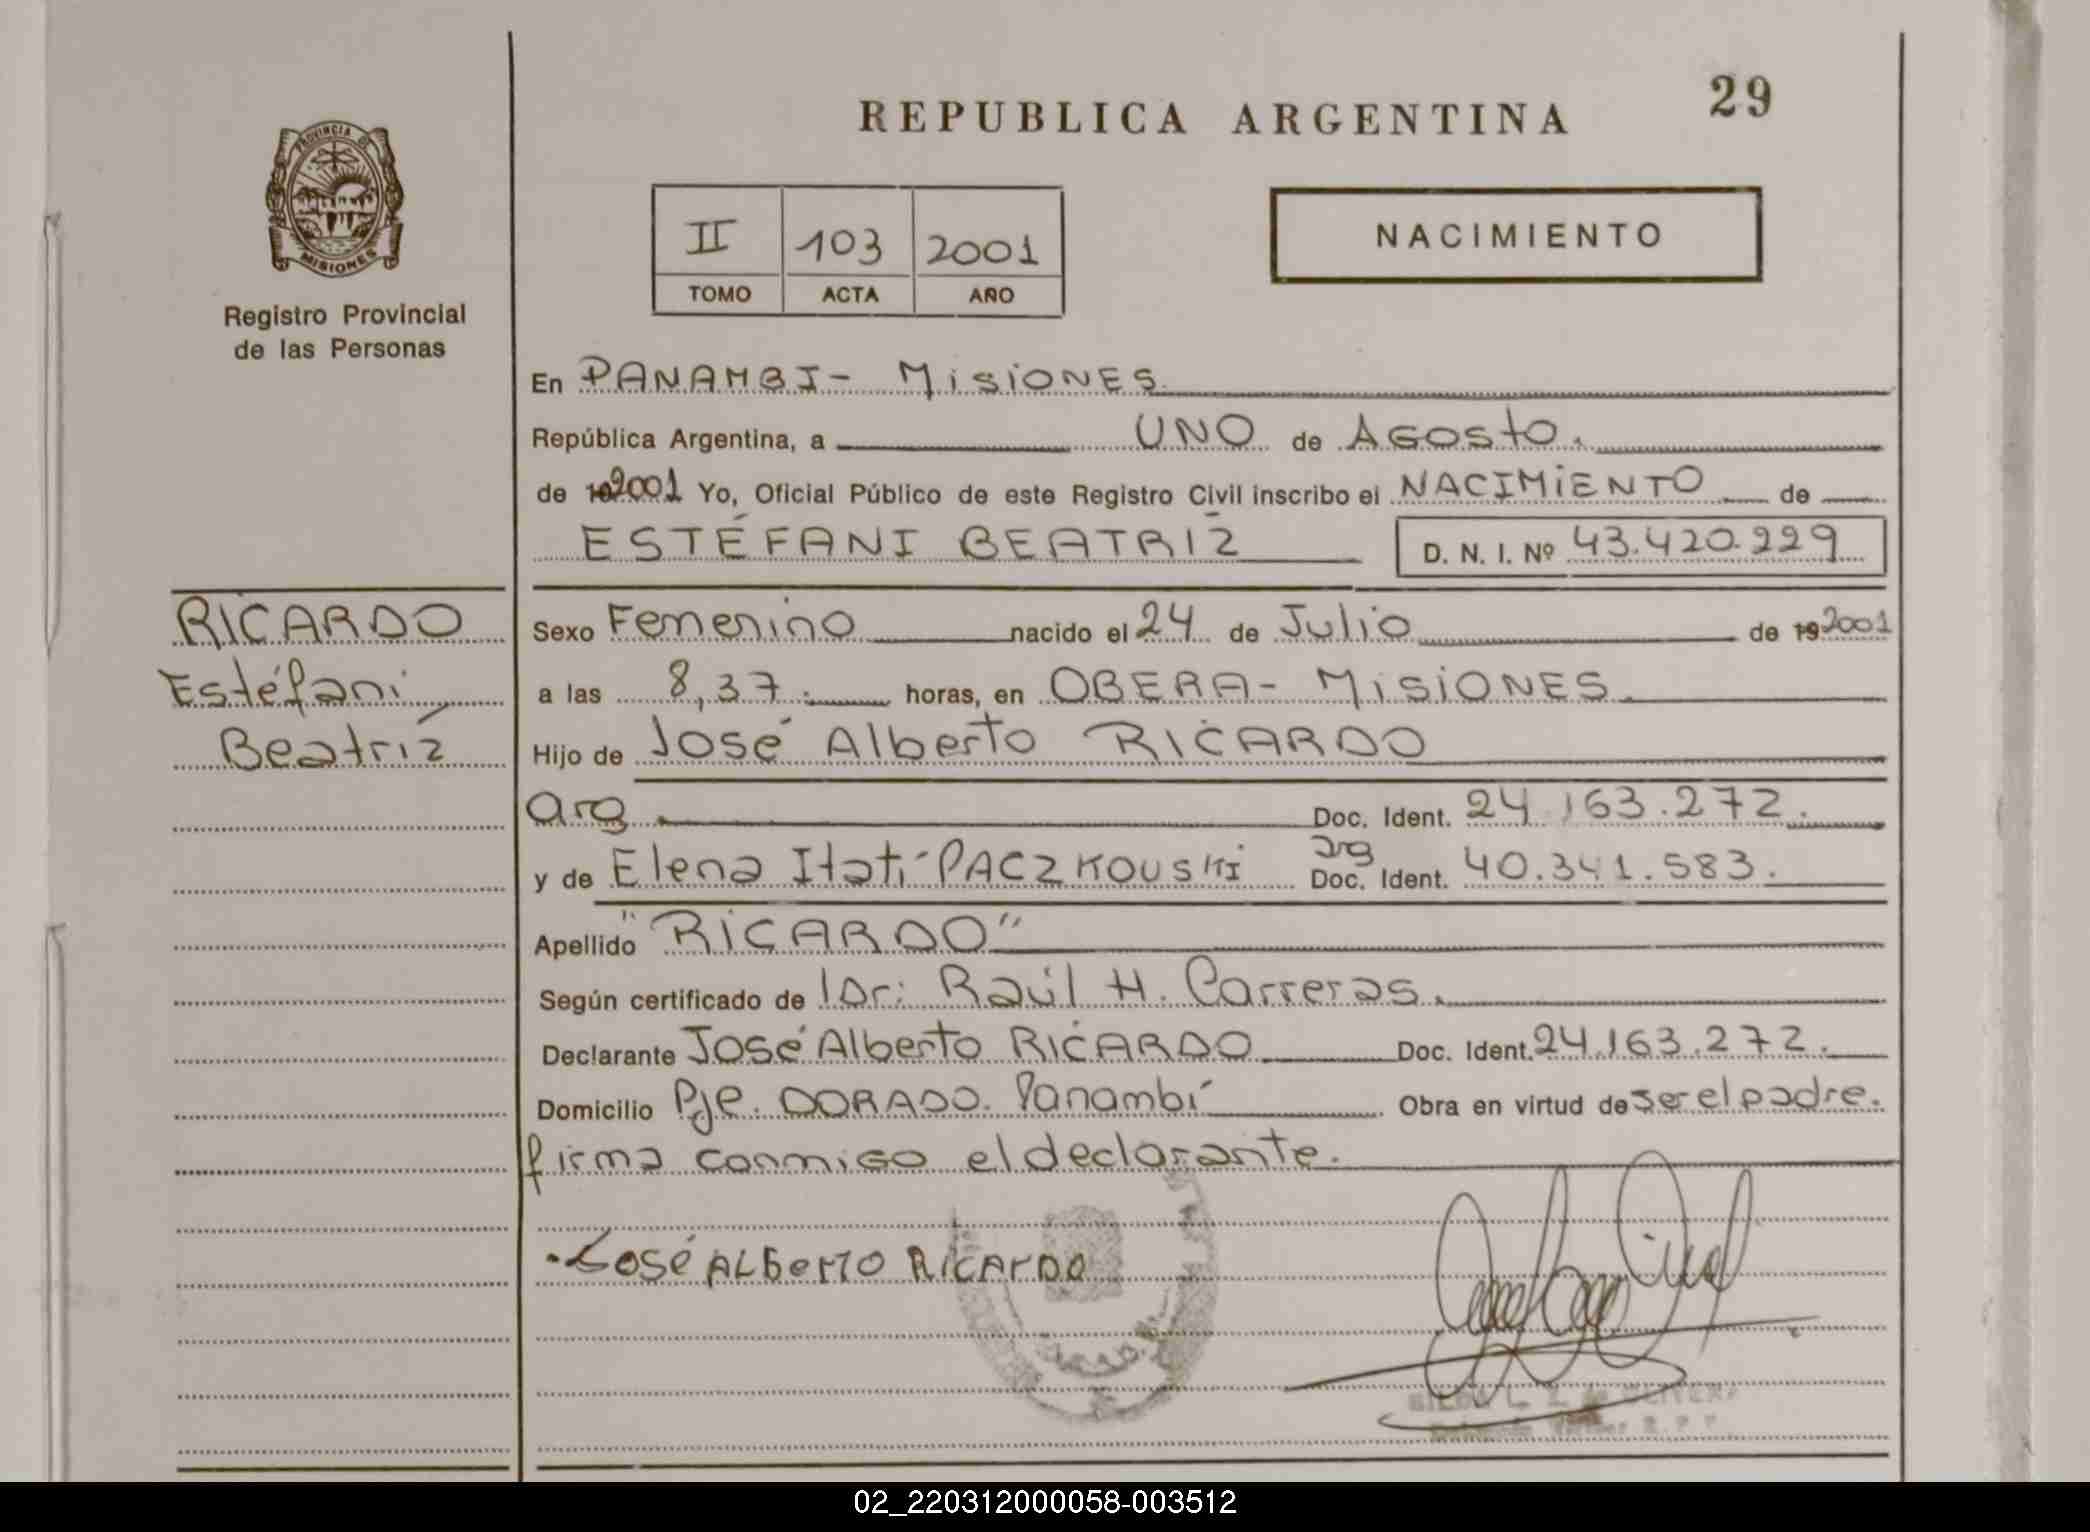 29
REPUBLICA ARGENTINA
PROVINCIA DE
MISIONES
Registro Provincial
de las Personas
II 103 2001
TOMO ACTA AÑO
NACIMIENTO
En PANAMBI - MisiONES
República Argentina, a UNO de AGOSto.
de 192001 Yo, Oficial Público de este Registro Civil inscribo el NACIMIENTO de
ESTÉFANI BEATRIZ D. N. I. Nº 43.420.229
RICARDO
Estéfani
Beatríz
Sexo Femenino nacido el 24 de Julio de 192001
a las 8,37. horas, en OBERA - MISIONES.
Hijo de José Alberto RICARDO
arg. Doc. Ident. 24.163.272.
y de Elena Itatí PACZKOUSKI arg Doc. Ident. 40.341.583.
Apellido "RICARDO"
Según certificado de Dr: Raúl H. Carreras.
Declarante José Alberto RICARDO Doc. Ident. 24.163.272.
Domicilio Pje. DORADO. Panambí Obra en virtud de ser el padre.
firma conmigo el declarante.
José ALBERTO RICARDO
02_220312000058-003512